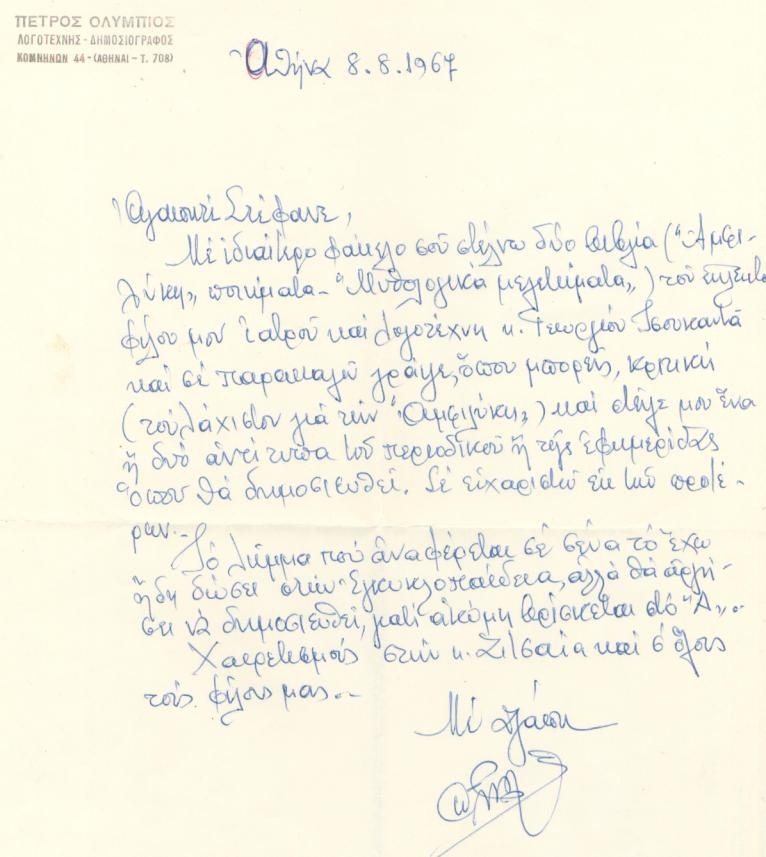 ΠΕΤΡΟΣ ΟΛΥΜΠΙΟΣ
ΛΟΓΟΤΕΧΝΗΣ - ΔΗΜΟΣΙΟΓΡΑΦΟΣ
ΚΟΜΝΗΝΩΝ 44 - (ΑΘΗΝΑΙ - Τ. 708)
Ἀθήνα 8.8.1967
Ἀγαπητέ Στέφανε,
Μέ ἰδιαίτερο φάκελο σοῦ στέλνω δύο βιβλία („Ἀμφι-
λύκη„ ποιήματα - „Μυθολογικά μελετήματα„) τοῦ ἐκλεκτοῦ
φίλου μου ἰατροῦ καί λογοτέχνη κ. Γεωργίου Τσουκαντᾶ
καί σέ παρακαλῶ γράψε, ὅπου μπορεῖς, κριτική
(τοὐλάχιστον γιά τήν „Ἀμφιλύκη„) καί στεῖλε μου ἕνα
ἤ δυό ἀντίτυπα τοῦ περιοδικοῦ ἤ τῆς ἐφημερίδας
ὅπου θά δημοσιευθεῖ. Σέ εὐχαριστῶ ἐκ τῶν προτέ-
ρων.-
Τό λῆμμα πού ἀναφέρεται σέ σένα τό ἔχω
ἤδη δώσει στήν Ἐγκυκλοπαίδεια, ἀλλά θά ἀργή-
σει νά δημοσιευθεῖ, γιατί ἀκόμη βρίσκεται στό „Α„.
Χαιρετισμούς στήν κ. καί σ' ὅλους
τούς φίλους μας..-
Μέ ἀγάπη